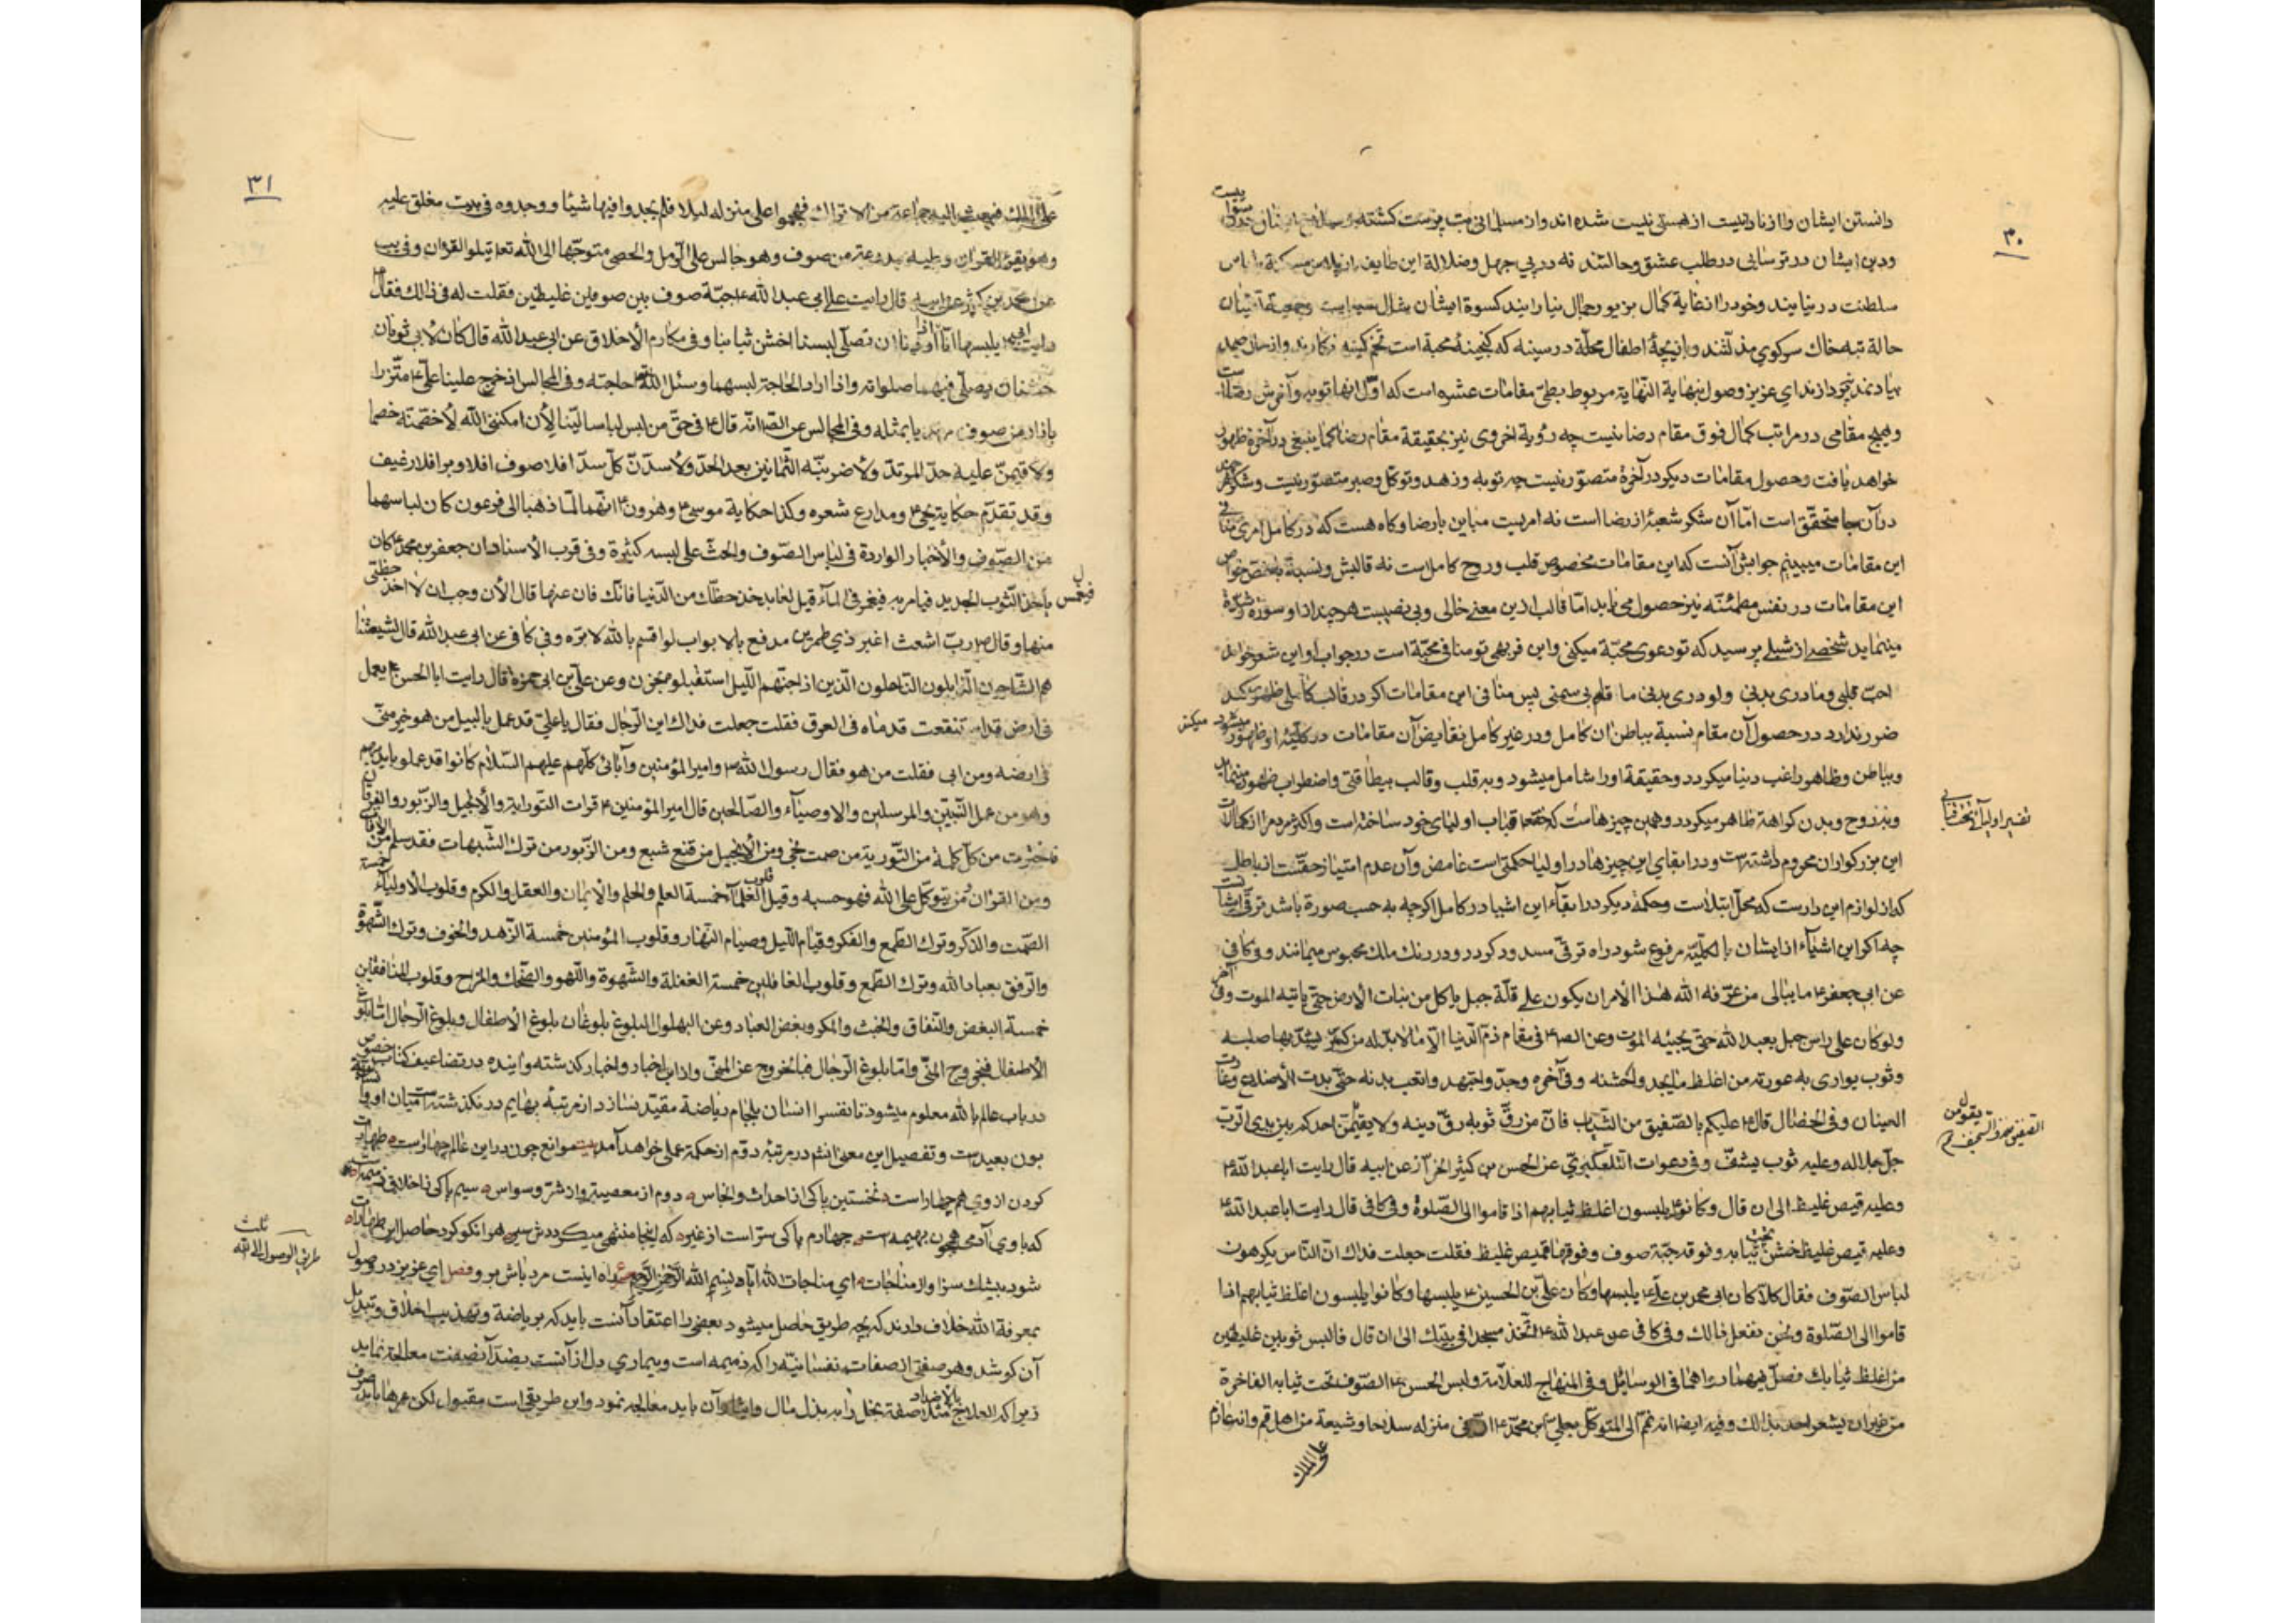 ۳۰
دانستن ایشان واز نادانیست از هستی نیست شده اند واز مسلمانی بت پرست کشته
ودین ایشان در ترسایی در طلب عشق وحالتند نه در پی جهل وضلالة این طایفه از پلاس مسکنة با لباس
سلطنت در نیایند وخود را از غایة کمال بزیور جمال نیارایند کسوة ایشان
حالة تبه خاک سرکوی مذلتند وبازیچهٔ اطفال محلّة در سینه که کنجینهٔ محبة است تخم کینه نکارند واز
نپردازند ای عزیز وصول بنهایة النهایة مربوط بطیّ مقامات عشره است که اوّل انها توبه وآخرش رضا
وهیچ مقامی در مراتب کمال فوق مقام رضا نیست چه رؤیة اخروی نیز بحقیقة مقام رضا کما ینبغی در آخرة ظهور
خواهد یافت وحصول مقامات دیکر در آخرة متصوّر نیست چه توبه وزهد وتوکل وصبر متصوّر نیست وشکر هر
در آن جا متحقّق است امّا آن شکر شعبهٔ از رضا است نه امریست مباین با رضا وکاه هست که در کامل امری
این مقامات میبینم جوابش آنست که این مقامات مخصوص قلب وروح کامل است نه قالبش ونسبة
این مقامات در نفس مطمئنّه نیز حصول می یابد امّا قالب ازین معنی خالی وبی نصیبست هر چند از او سوزة
مینماید شخصی از شبلی پرسید که تو دعوی محبّة میکنی واین فربهی تو منافی محبّة است در جواب او این شعر خواند
احبّ قلبی وما دری بدنی ولو دری بدنی ما قام بی سمنی پس منافی این مقامات اکر در قالب کاملی ظهور کند
ضرر ندارد در حصول آن مقام نسبة بباطن ان کامل ودر غیر کامل نقایض آن مقامات در کلیّة او ظهور میکند
وبباطن وظاهر راغب دنیا میکردد وحقیقة او را شامل میشود وبه قلب وقالب بیطاقتی واضطراب ظهور مینماید
وبر روح وبدن کراهة ظاهر میکردد وهمین چیزهاست که حقتعا قباب اولیای خود ساخته است واکثر مردم را از کمالات
این بزرکواران محروم داشته است ودر ابقای این چیزها در اولیا حکمتی است غامض وآن عدم امتیاز حقّست از باطل
که از لوازم این دارست که محلّ ابتلاست وحکمة دیکر در ابقاء این اشیا در کامل اکرچه به حسب صورة باشد ترقّی ایشانست
چه اکر این اشیاء از ایشان بالکلّیّه مرفوع شود راه ترقّی مسدود کردد ودر رنک ملک محبوس میمانند وفی کافی
عن ابی جعفر ع ما یبالی من عرّفه الله هذا الأمر ان یکون علی قلّة جبل یاکل من نبات الارض حتی یاتیه الموت وفی آخر
ولو کان علی راس جبل یعبد الله حتی یجیئه الموت وعن الص ع فی مقام ذمّ الدّنیا الّا ما لا بدّ له من کسرة یشدّ بها صلبه
وثوب یواری به عورته من اغلظ ما یجد واخشنه وفی آخره وجدّ واجتهد واتعب بدنه حتّی بدت الأضلاع وغارت
العینان وفی الخصال قال ع علیکم بالصّفیق من الثّیاب فانّ من رقّ ثوبه رقّ دینه ولا یقیمنّ احدکم بین یدی الربّ
جلّ جلاله وعلیه ثوب یشفّ وفی دعوات التلعکبریّ عن الحسن بن کثیر الخزّاز عن ابیه قال رایت اباعبدالله ع
وعلیه قمیص غلیظ الی ان قال وکانوا یلبسون اغلظ ثیابهم اذا قاموا الی الصّلوة وفی کافی قال رایت اباعبدالله ع
وعلیه قمیص غلیظ خشن تحت ثیابه وفوقه جبّة صوف وفوقها قمیص غلیظ فقلت جعلت فداک انّ النّاس یکرهون
لباس الصّوف فقال کلّا کان ابی محمد بن علی ع یلبسها وکان علیّ بن الحسین ع یلبسها وکانوا یلبسون اغلظ ثیابهم اذا
قاموا الی الصّلوة ونحن نفعل ذالک وفی کافی عن عبدالله ع اتّخذ مسجدا فی بیتک الی ان قال فالبس ثوبین غلیظین
من اغلظ ثیابک فصلّ فیهما رواهما فی الوسائل وفی المنهاج للعلّامة ولبس الحسن ع الصّوف تحت ثیابه الفاخرة
من غیر ان یشعر احد بذالک وفیه ایضا انه نمّ الی المتوکّل بعلی بن محمّد ع انّ فی منزله سلاحا وشیعة من اهل قم وانه عازم
علی الملک
تفسیر اولیائی تحت قبابی
۳۱
علی الملک فبعث الیه جماعة من الاتراک فهجموا علی منزله لیلا فلم یجدوا فیها شیئا ووجدوه فی بیت مغلق علیه
وهو یقرء القرآن وعلیه مدرعة من صوف وهو جالس علی الرّمل والحصی متوجّها الی الله تعا یتلو القرآن وفی
عن محمد بن کثیر عن ابیه قال رایت علی ابی عبدالله ع جبّة صوف بین صوفین غلیظین فقلت له فی ذالک فقال
رایت ابی یلبسها انّا اذا اردنا ان نصلّی لبسنا اخشن ثیابنا وفی مکارم الأخلاق عن ابی عبدالله قال کان لأبی ثوبان
خشنان یصلّی فیهما صلواته واذا اراد الحاجة لبسهما وسئل الله حاجته وفی المجالس اذ خرج علینا علی ع متّزرا
بازار من صوف وفی المجالس عن الص انّه قال ع فی حقّ من لبس لباسا لیّنا لإن امکننی الله لأخصمنه خصما
ولاقیمنّ علیه حدّ المرتدّ ولأضربنّه الثّمانین بعد الحدّ ولأسدّنّ کلّ سدّ افلا صوف افلا وبر افلا رغیف
وقد تقدّم حکایة یحیی ع ومدارع شعره وکذا حکایة موسی ع وهرون ع انّهما لمّا ذهبا الی فرعون کان لباسهما
من الصّوف والأخبار الواردة فی لباس الصّوف والحثّ علی لبسه کثیرة وفی قرب الأسناد ان جعفر بن محمد ع کان
یاخذ الثّوب الجدید فیامر به فیغمس فی الماء قیل لعابد خذ حظّک من الدّنیا فانّک فان عنها قال الأن وجب ان لا اخذ حظّی
منها وقال ص ربّ اشعث اغبر ذی طمرین مدفع بالابواب لو اقسم بالله لابرّه وفی کافی عن ابی عبدالله قال شیعتنا
هم الشّاحبون الذّابلون النّاحلون الّذین اذا جنّهم اللّیل استقبلوه بحزن وعن علیّ بن ابی حمزة قال رایت ابا الحسن ع یعمل
فی ارض قد استنقعت قدماه فی العرق فقلت جعلت فداک این الرّجال فقال یا علیّ قد عمل بالبیل من هو خیر منّی
فی ارضه ومن ابی فقلت من هو فقال رسول الله ص وامیرالمؤمنین وآبائی کلّهم علیهم السّلام کانوا قد عملوا بایدیهم
وهو من عمل النّبیّین والمرسلین والاوصیاء والصّالحین قال امیرالمؤمنین ع قرات التّوراة والأنجیل والزّبور والفرقان
فاخترت من کلّ کلمة من التّوریة من صمت نجی ومن الأنجیل من قنع شبع ومن الزّبور من ترک الشّبهات فقد سلم من الآفات
ومن القرآن من یتوکّل علی الله فهو حسبه وقیل قلوب العلماء خمسة العلم والحلم والایمان والعقل والکرم وقلوب الأولیاء خمسة
الصّمت والذّکر وترک الطّمع والفکر وقیام اللّیل وصیام النّهار وقلوب المؤمنین خمسة الزّهد والخوف وترک الشّهوة
والرّفق بعباد الله وترک الطّمع وقلوب الغافلین خمسة الغفلة والشّهوة واللّهو والضّحک والمزاح وقلوب المنافقین
خمسة البغض والنّفاق والخبث والمکر وبغض العباد وعن البهلول البلوغ بلوغان بلوغ الأطفال وبلوغ الرّجال امّا بلوغ
الأطفال فبخروج المنیّ وامّا بلوغ الرّجال فبالخروج عن المنیّ واز این اخبار واخبار کذشته وآینده در تضاعیف کتاب
در باب عالم بالله معلوم میشود تا نفس را انسان بلجام ریاضة مقیّد نسازد از مرتبهٔ بهایم در نکذشته است میان او
بون بعید است وتفصیل این معنی انشم در مرتبهٔ دوّم از حکمة عملی خواهد آمد بیت موانع چون در این عالم چهارست طهارت
کردن از وی هم چهار است نخستین پاکی از احداث وانجاس دوم از معصیة واز شرّ وسواس سیم پاکی ز اخلاق ذمیمه است
که با وی آدمی همچون بهیمه است چهارم پاکی سرّ است از غیر که اینجا منتهی میکرددش سیر هر انکو کرد حاصل این طهارات
شود بیشک سزاوار مناجات ای مناجات الله آیاه بسم الله الرّحمن الرّحیم راه اینست مرد باش برو فصل ای عزیز در وصول
بمعرفة الله خلاف دارند که بچه طریق حاصل میشود بعضی را اعتقاد آنست باید که بریاضة وتهذیب اخلاق وتبدیل
آن کوشد وهر صفتی از صفات نفسانیّه را که ذمیمه است وبیماری دل از آنست بضدّ آن صفت معالجه نماید
زیرا که العلاج بالاضداد مثلا صفة بخل را به بذل مال وایثار آن باید معالجه نمود واین طریقی است مقبول لکن عمرها باید صرف
ثالث
طرق الوصول الی الله